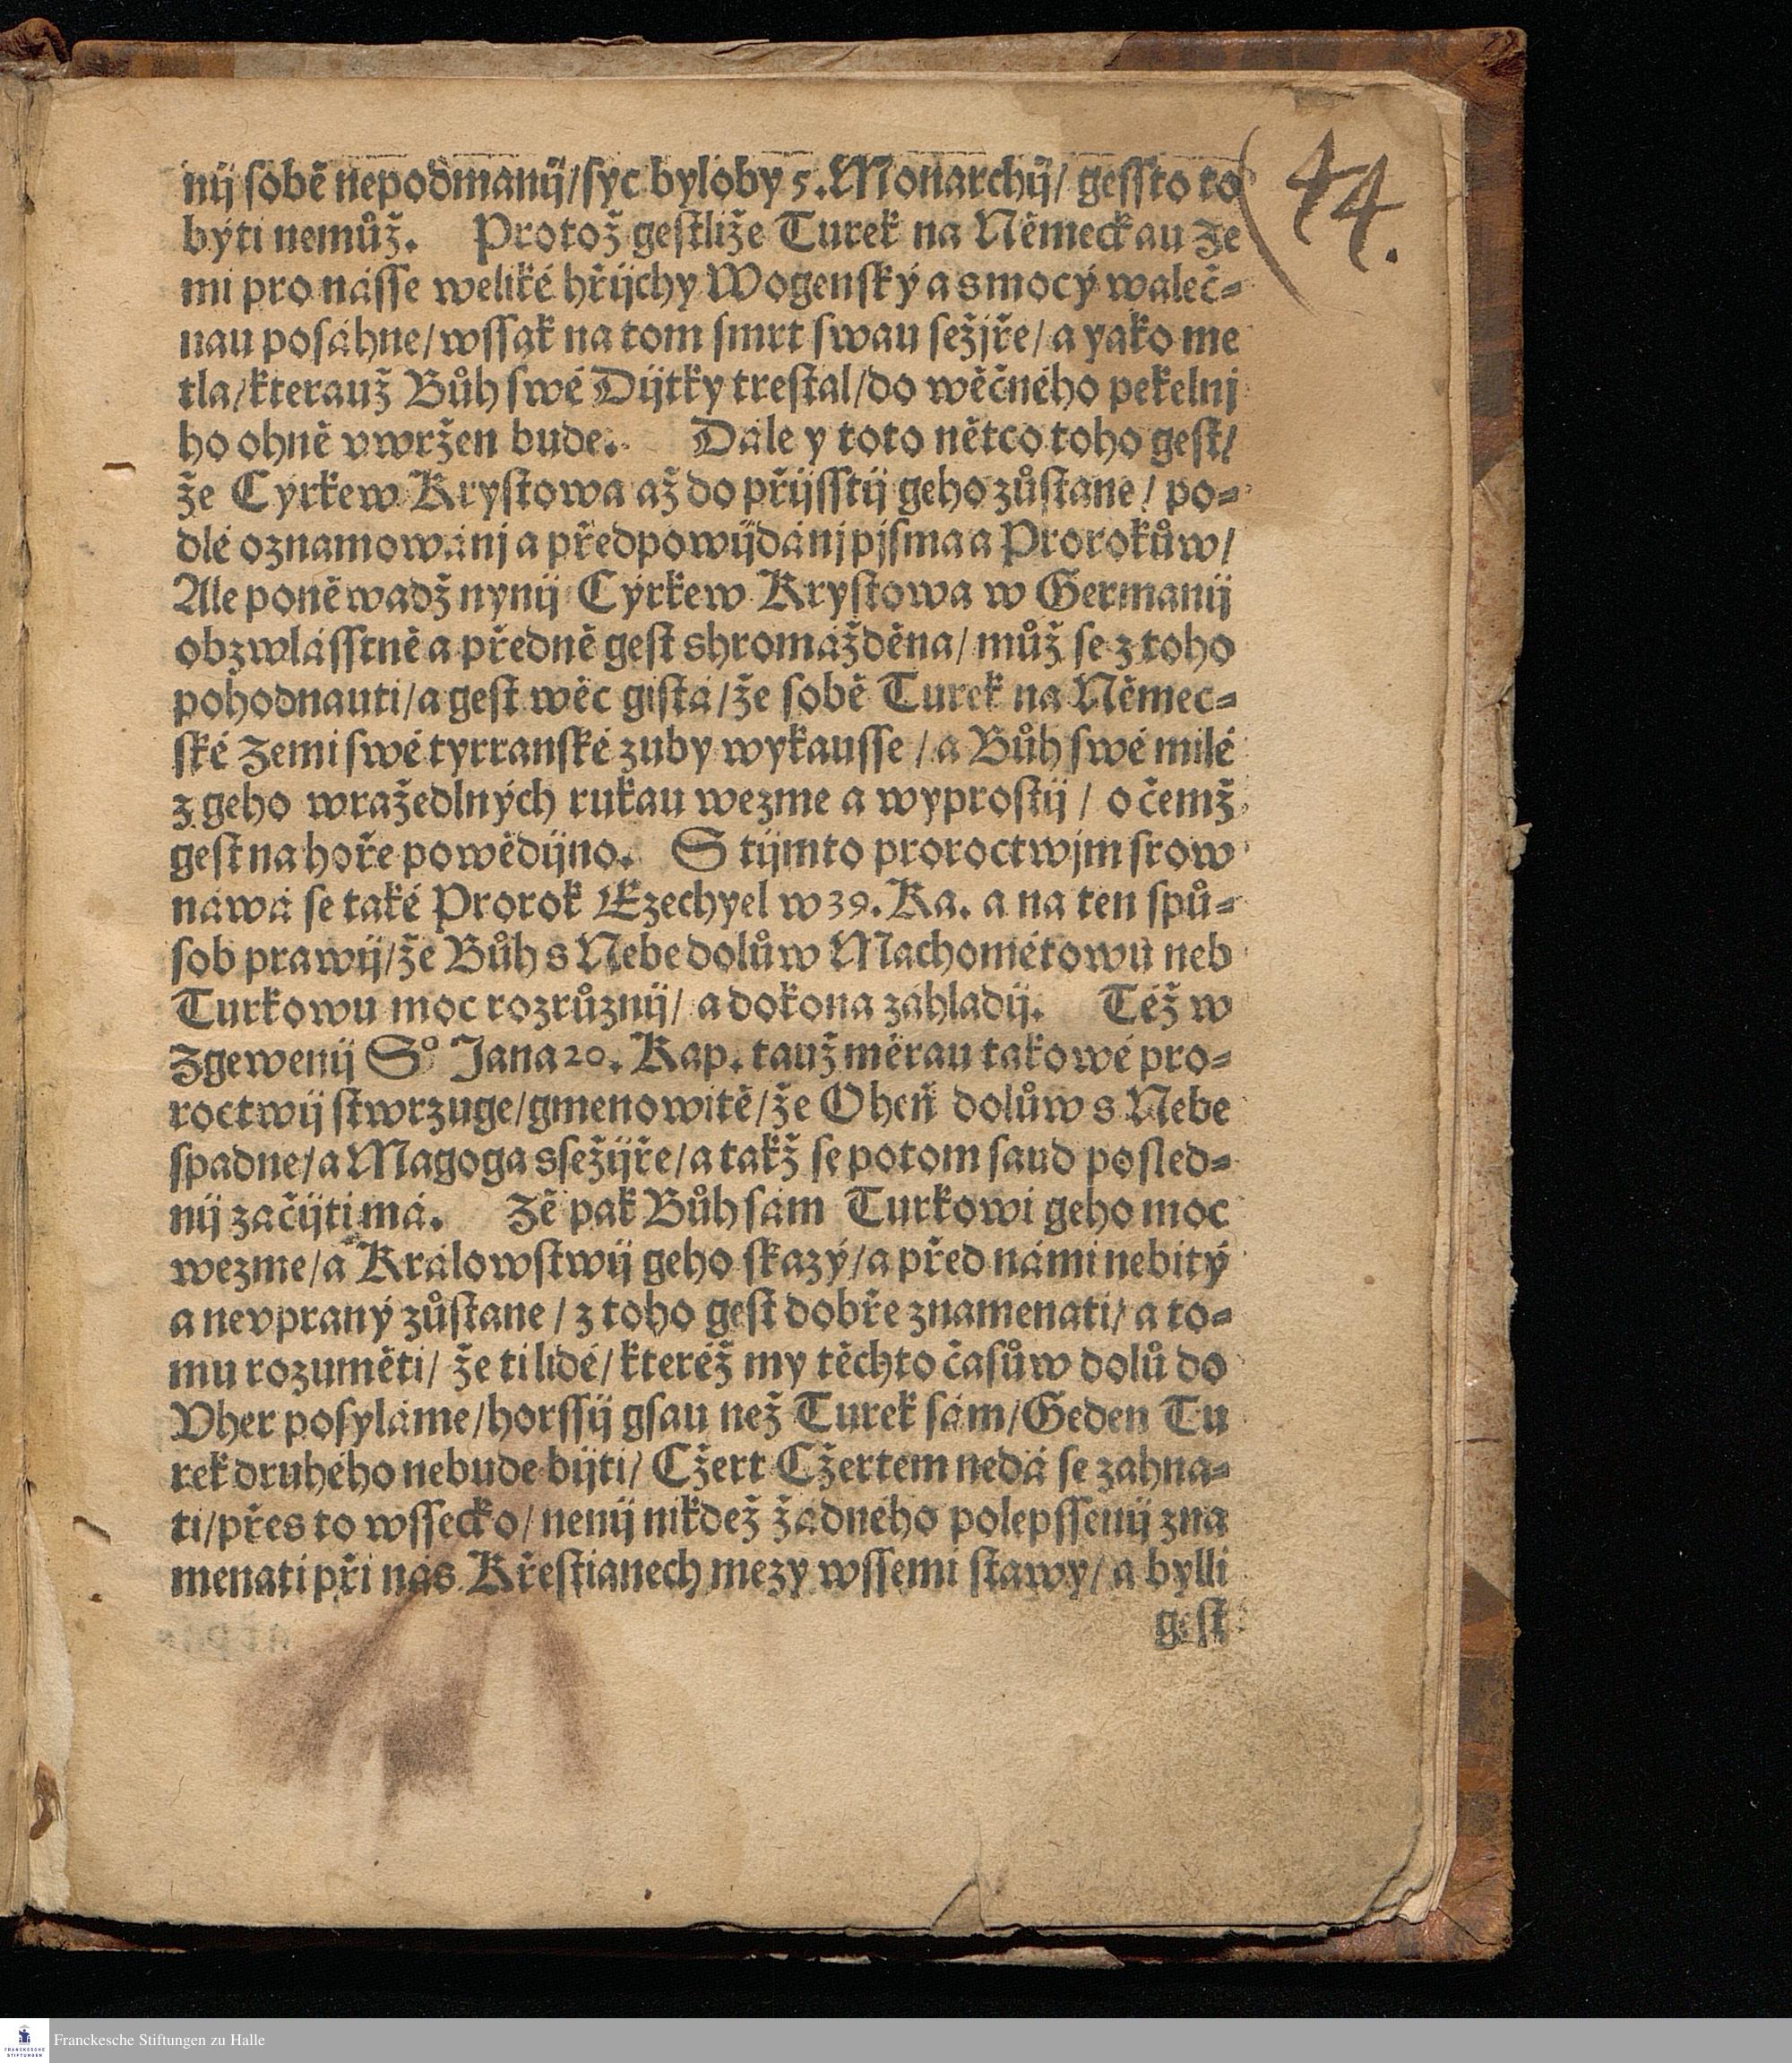 nij sobě nepodmanij/ syc byloby 5. Monarchij/ gessto to
býti nemůž. Protož gestliže Turek na Německau Ze
mi pro násse weliké hřijchy Wogenský a s mocý waleč=
nau posáhne/ wssak na tom smrt swau sežjře/ a yako me
tla/ kterauž Bůh swé Dijtky trestal/ do wěčného pekelnj
ho ohně vwržen bude. Dále y toto nětco toho gest/
že Cýrkew Krystowa až do přijsstij geho zůstane/ po=
dlé oznamowánj a předpowijdánj pjsma a Prorokůw/
Ale poněwadž nynij Cýrkew Krystowa w Germanij
obzwlásstně a předně gest shromážděna/ můž se z toho
pohodnauti/ a gest wěc gistá/ že sobě Turek na Němec=
ské Zemi swé tyrranské zuby wykausse/ a Bůh swé milé
z geho wražedlných rukau wezme a wyprostij/ o čemž
gest na hoře powědijno. S tijmto proroctwjm srow
náwá se také Prorok Ezechyel w 39. Ka. a na ten spů=
sob prawij/ že Bůh s Nebe dolůw Machométowu neb
Turkowu moc rozrůznij/ a dokona zahladij. Též w
Zgewenij S° Jana 20. Kap. tauž měrau takowé pro=
roctwij stwrzuge/ gmenowitě/ že Oheň dolůw s Nebe
spadne/ a Magoga ssežijře/ a takž se potom saud posled=
nij začijti má. Zě pak Bůh sám Turkowi geho moc
wezme/ a Králowstwij geho skazý/ a před námi nebitý
a nevpraný zůstane/ z toho gest dobře znamenati/ a to=
mu rozuměti/ že ti lidé/ kteréž my těchto časůw dolů do
Vher posyláme/ horssij gsau než Turek sám/ Geden Tu
rek druhého nebude bijti/ Cžert Cžertem nedá se zahna=
ti/ přes to wssecko/ nenij nikdež žádného polepssenij zna
menati při nás Křestianech mezy wssemi stawy/ a bylli
gest
44.
Franckesche Stiftungen zu Halle
FRANCKESCHE
STIFTUNGEN